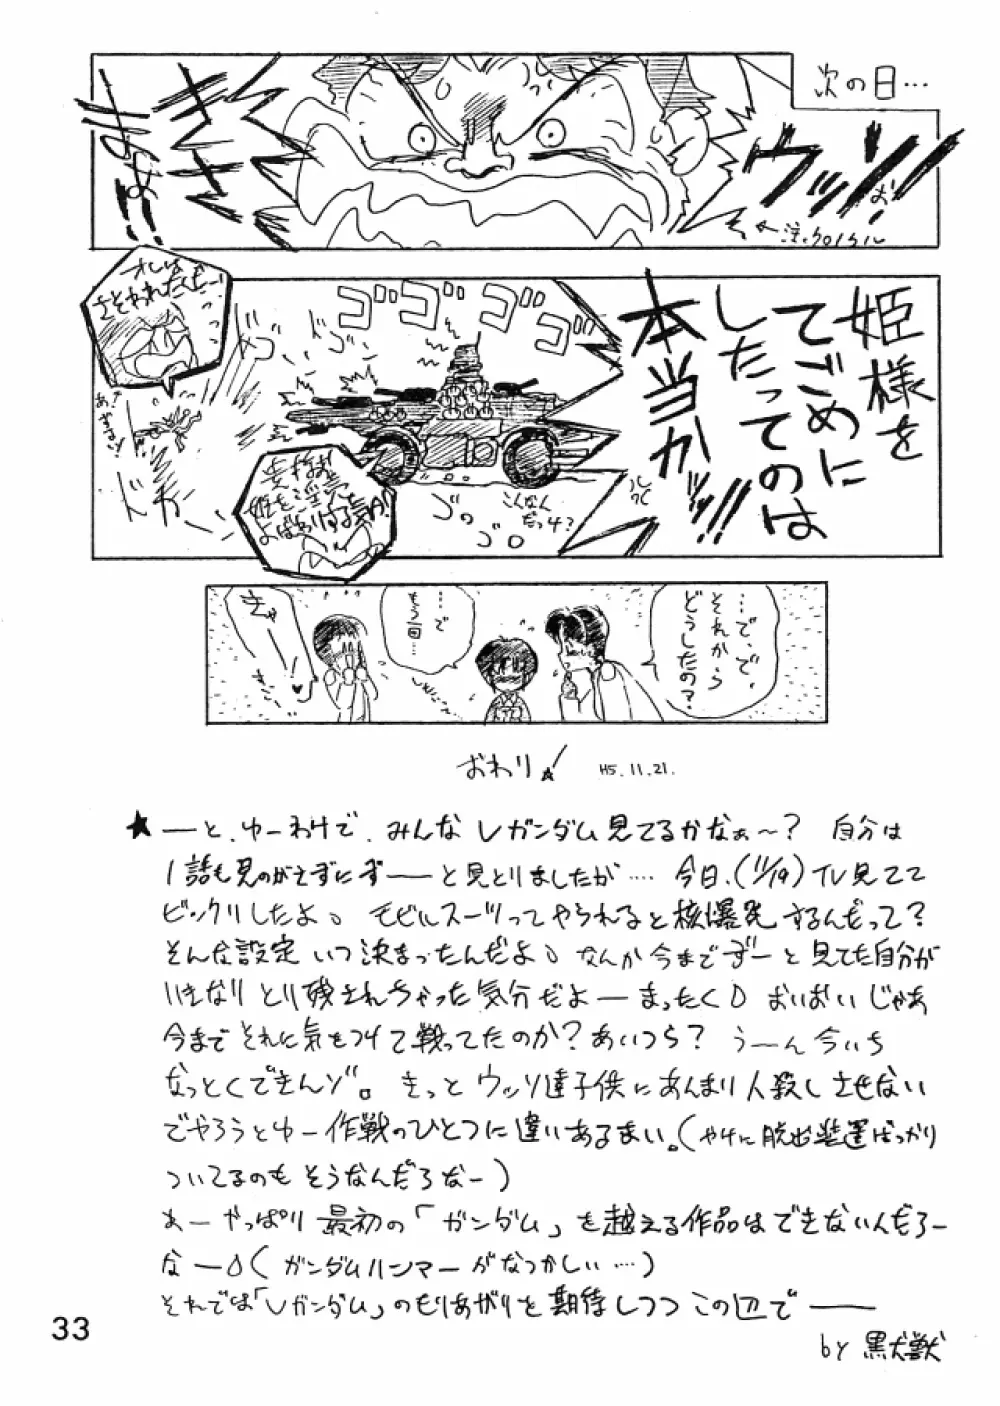 次の日…
ウッソ
お!
←注.クロノクル
きさまぁ!!
姫様を
てごめに
したってのは
本当か!!
ゴゴゴゴ
オレは
さそわれたんだー!
ドカーン
姫を淫売
よばわりする気か!
こんなん
だっけ?
ゴゴゴ
…で、で、
それから
どうしたの?
…で
もう一回…
きゃーー
おわり! H5.11.21.
★ーと、ゆーわけで、みんなVガンダム見てるかなぁ〜? 自分は
1話も見のがさずにずーーと見とりましたが…… 今日、(11/19)TV見てて
ビックリしたよ。 モビルスーツってやられると核爆発するんだって?
そんな設定いつ決まったんだよ。なんか今までずーと見てた自分が
いきなりとり残されちゃった気分だよーまったく。 おいおいじゃあ
今までそれに気をつけて戦ってたのか?あいつら? うーん今いち
なっとくできんゾ。 きっとウッソ達子供にあんまり人殺しさせない
でやろうとゆー作戦のひとつに違いあるまい。(やけに脱出装置ばっかり
ついてるのもそうなんだろなー)
あーやっぱり最初の「ガンダム」を越える作品はできないんだろー
なー。(ガンダムハンマーがなつかしい…)
それでは「Vガンダム」のもりあがりを期待しつつこの辺でーー
by 黒犬獣
33